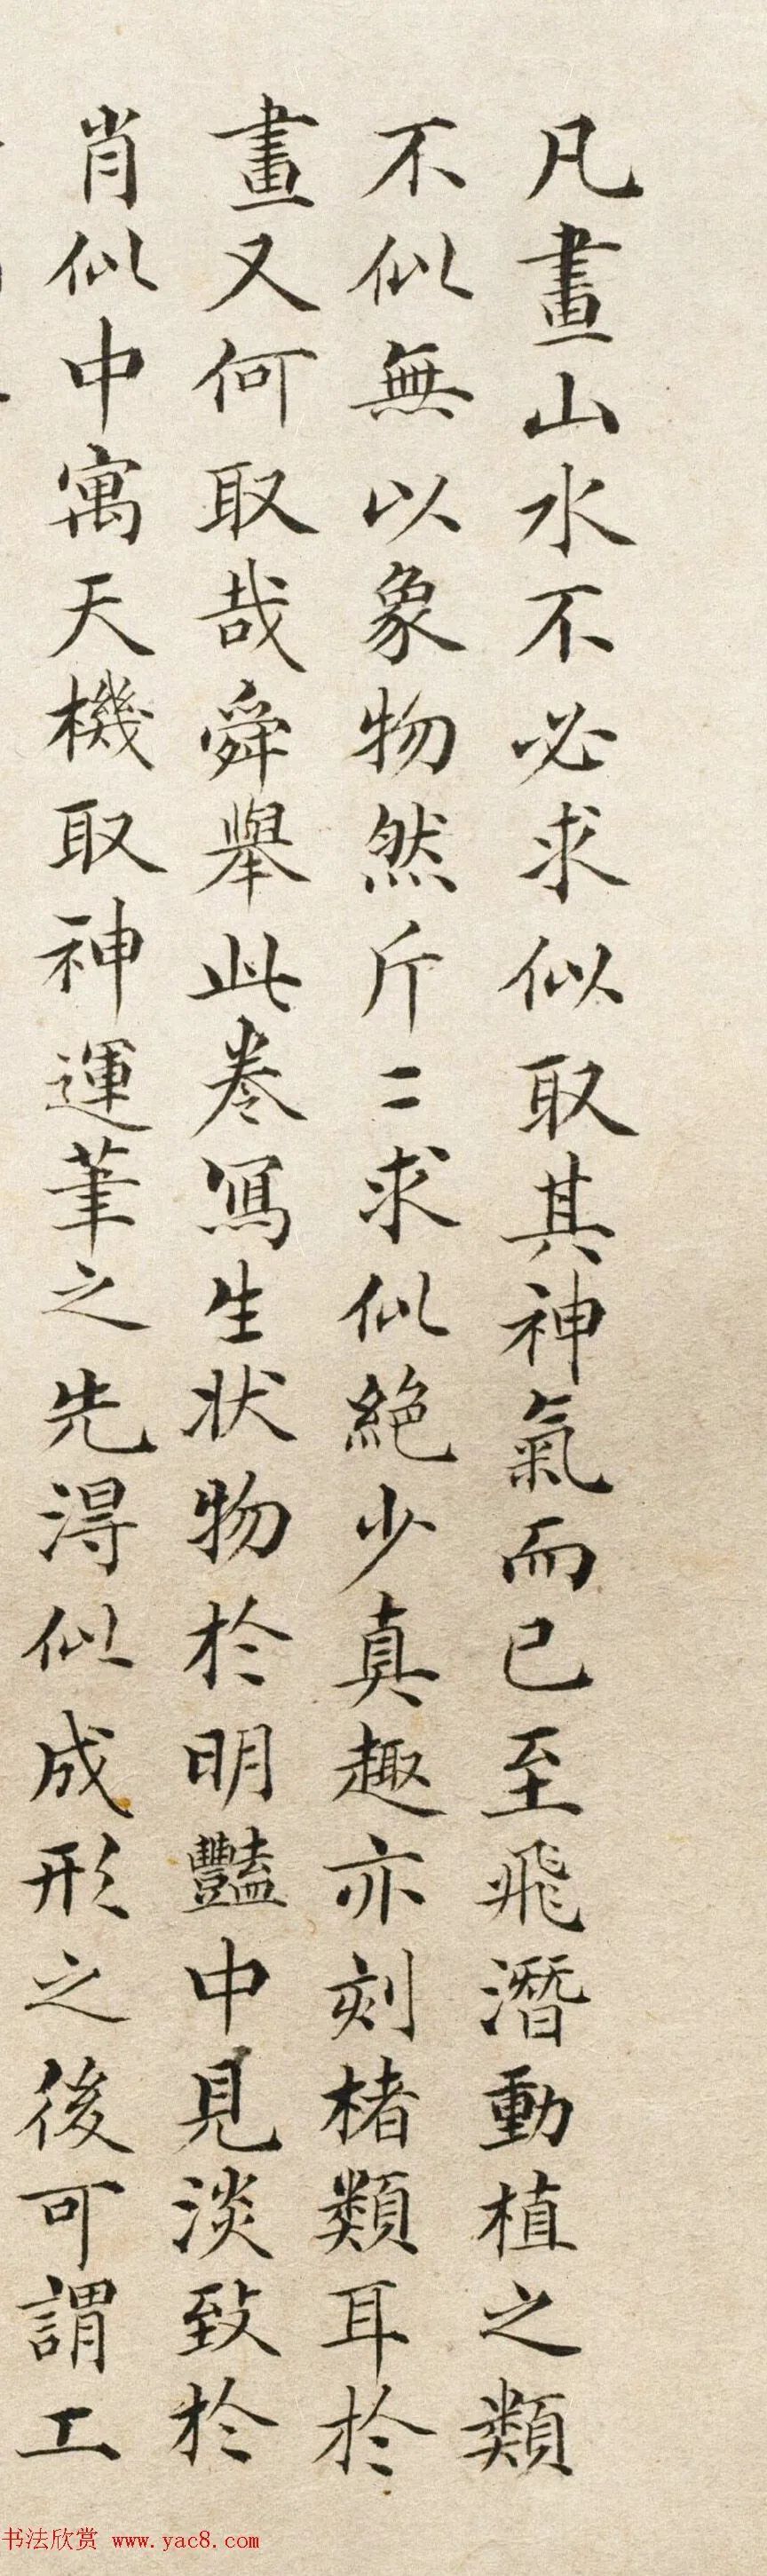 凡畫山水不必求似取其神氣而已至飛潛動植之類
不似無以象物然斤〻求似絕少真趣亦刻楮類耳於
畫又何取哉舜舉此卷寫生狀物於明豔中見淡致於
肖似中寓天機取神運筆之先淂似成形之後可謂工
书法欣赏 www.yac8.com